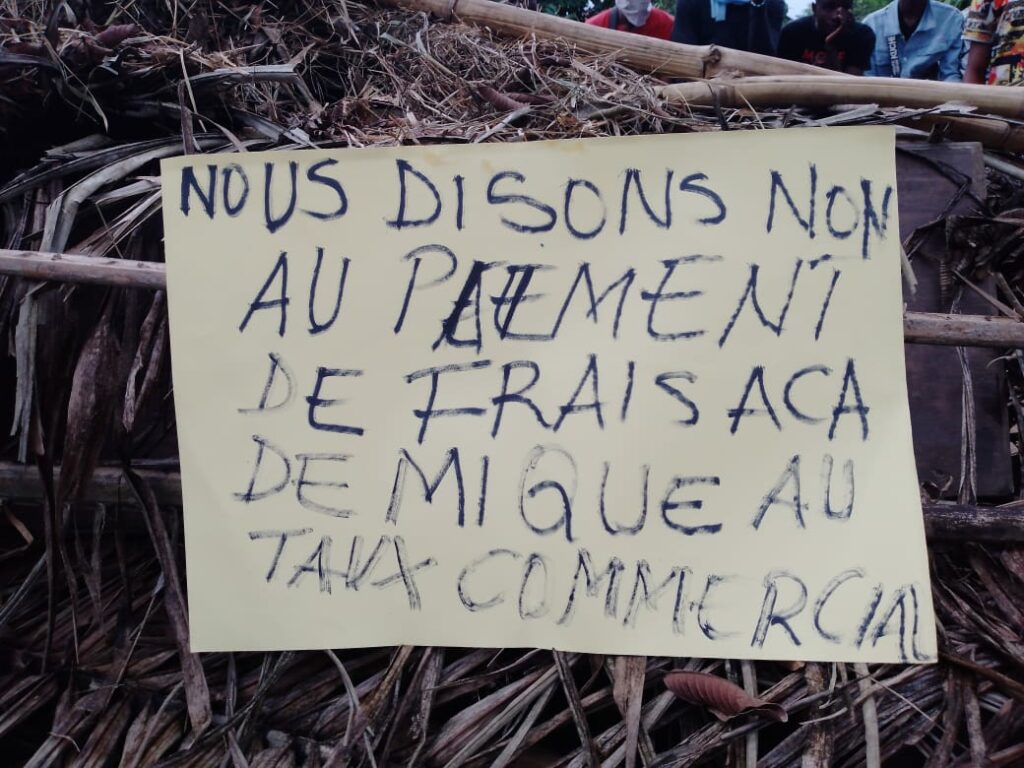 NOUS DISONS NON
AU PAIEMENT
DE FRAIS ACA
DEMIQUE AU
TAUX COMMERCIAL